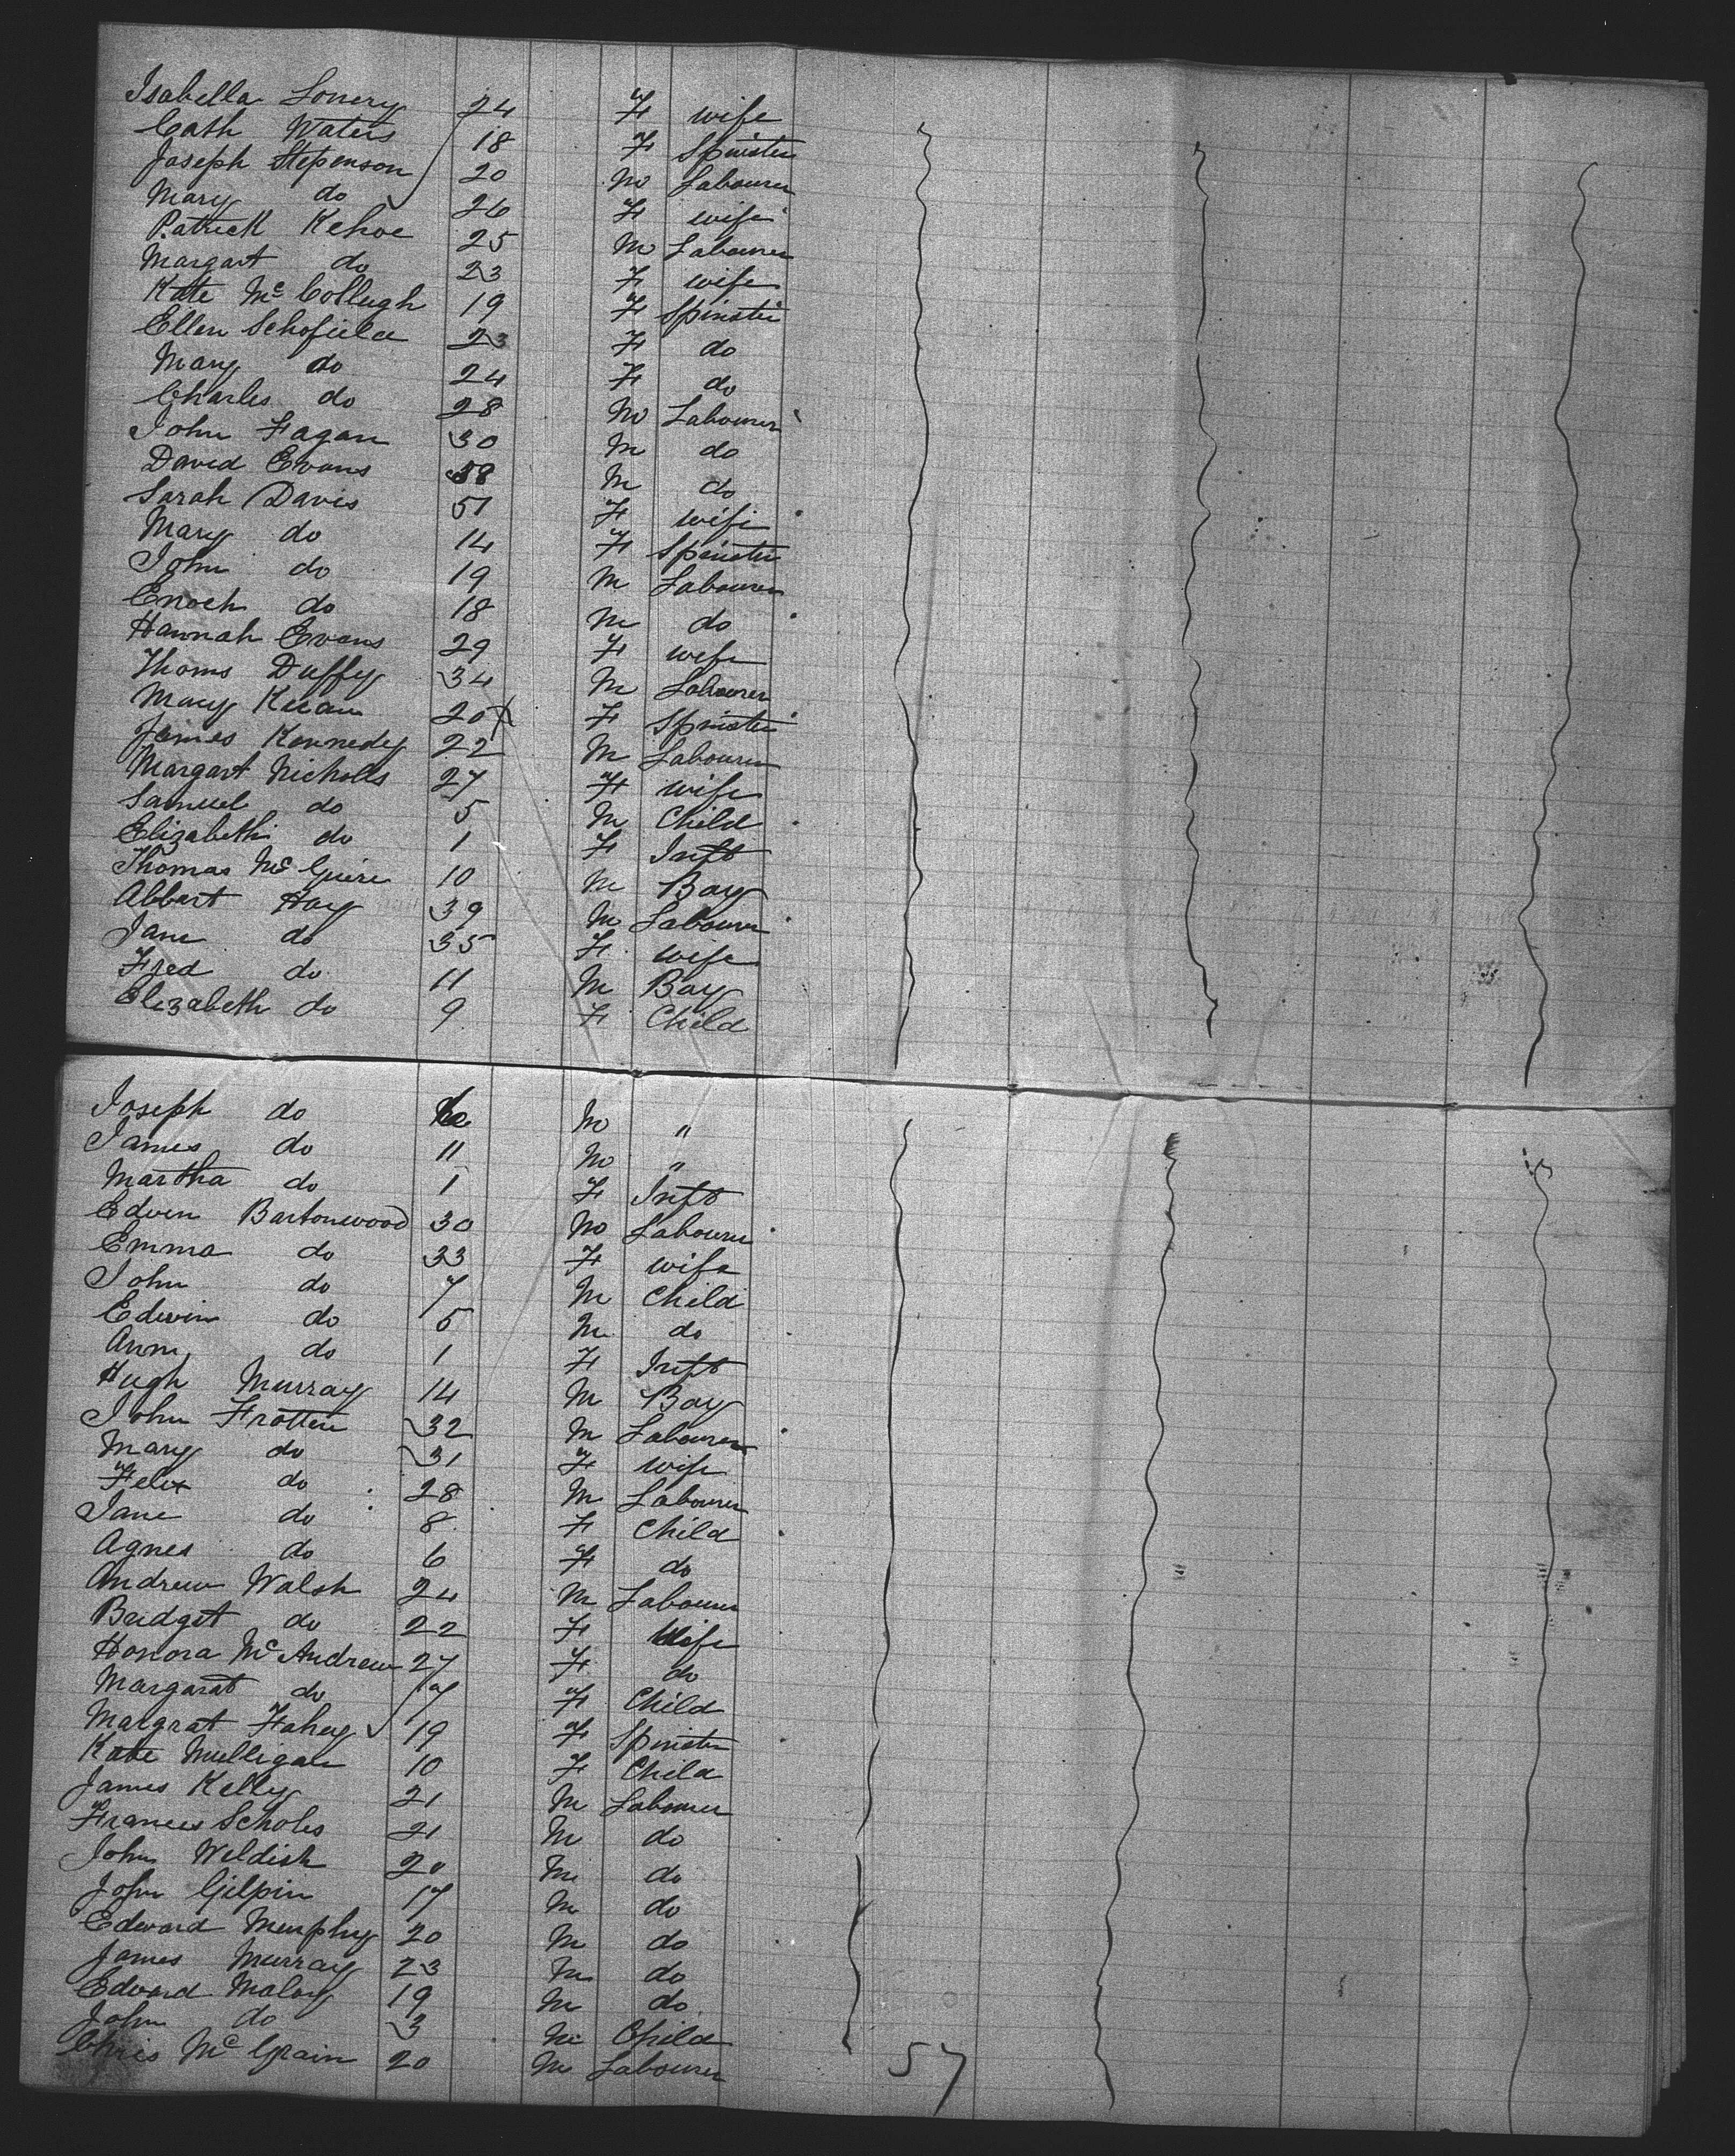 Isabella Lonery 24 F wife
Cath Waters 18 F Spinster
Joseph Stepenson 20 M Labourer
Mary do 26 F wife
Patrick Kehoe 25 M Labourer
Margart do 23 F wife
Kate Mc Collugh 19 F Spinster
Ellen Schofield 23 F do
Mary do 24 F do
Charles do 28 M Labourer
John Fagan 30 M do
David Evans 38 M do
Sarah Davis 51 F wife
Mary do 14 F Spinster
John do 19 M Labourer
Enoch do 18 M do
Hannah Evans 29 F wife
Thoms Duffy 34 M Labourer
Mary 20 F Spinster
James Kennedy 22 M Labourer
Margart Nicholls 27 F wife
Samuel do 5 M Child
Elizabeth do 1 F Inft
Thomas Mc Guire 10 M Boy
Abbart Hay 39 M Labourer
Jane do 35 F wife
Fred do 11 M Boy
Elizabeth do 9 F Child
Joseph do M "
James do 11 M "
Martha do 1 F Inft
Edven Bartonwood 30 M Labourer
Emma do 33 F wife
John do 7 M Child
Edwin do 5 M do
Ann do 1 F Inft
Hugh Murray 14 M Boy
John Fratten 32 M Labourer
Mary do 31 F wife
Felix do 28 M Labourer
Jane do 8 F Child
Agnes do 6 F do
Andrew Walsh 24 M Labourer
Bridget do 22 F Wife
Honora Mc Andrew 27 F do
Margarat do 7 F Child
Margrat Fahey 19 F Spinster
Kate Mulligan 10 F Child
James Kelly 21 M Labourer
Frances Scholes 21 M do
John Weldish 20 M do
John Gilpin 17 M do
Edward Murphy 20 M do
James Murray 23 M do
Edward Maloy 19 M do
John do 3 M Child
Chris Mc Grain 20 M Labourer
57